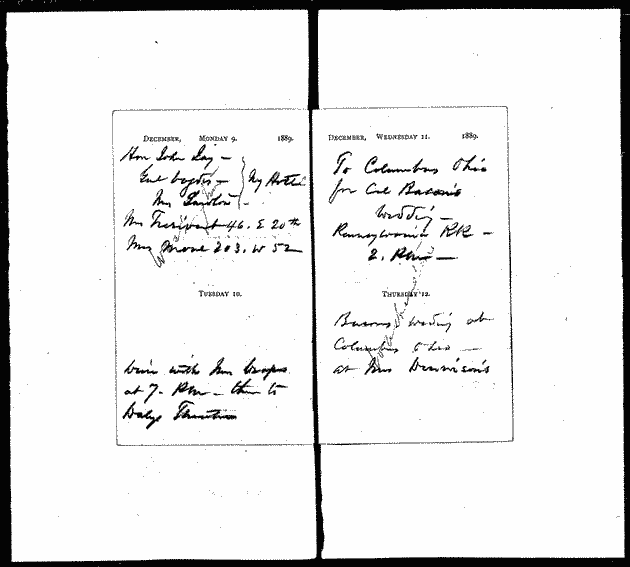 DECEMBER, MONDAY 9. 1889.
Hon John Jay —
My Hotel
46. E 20th
Mrs 203. W 52
TUESDAY 10.
Dine with Mrs
at 7. PM — then to
Dalys Theatre
DECEMBER, WEDNESDAY 11. 1889.
To Columbus Ohio
for Col Bacon's
Wedding —
Pennsylvania RR —
2. PM —
THURSDAY 12.
Bacons wedding at
Columbus Ohio —
at Mrs Dennison's